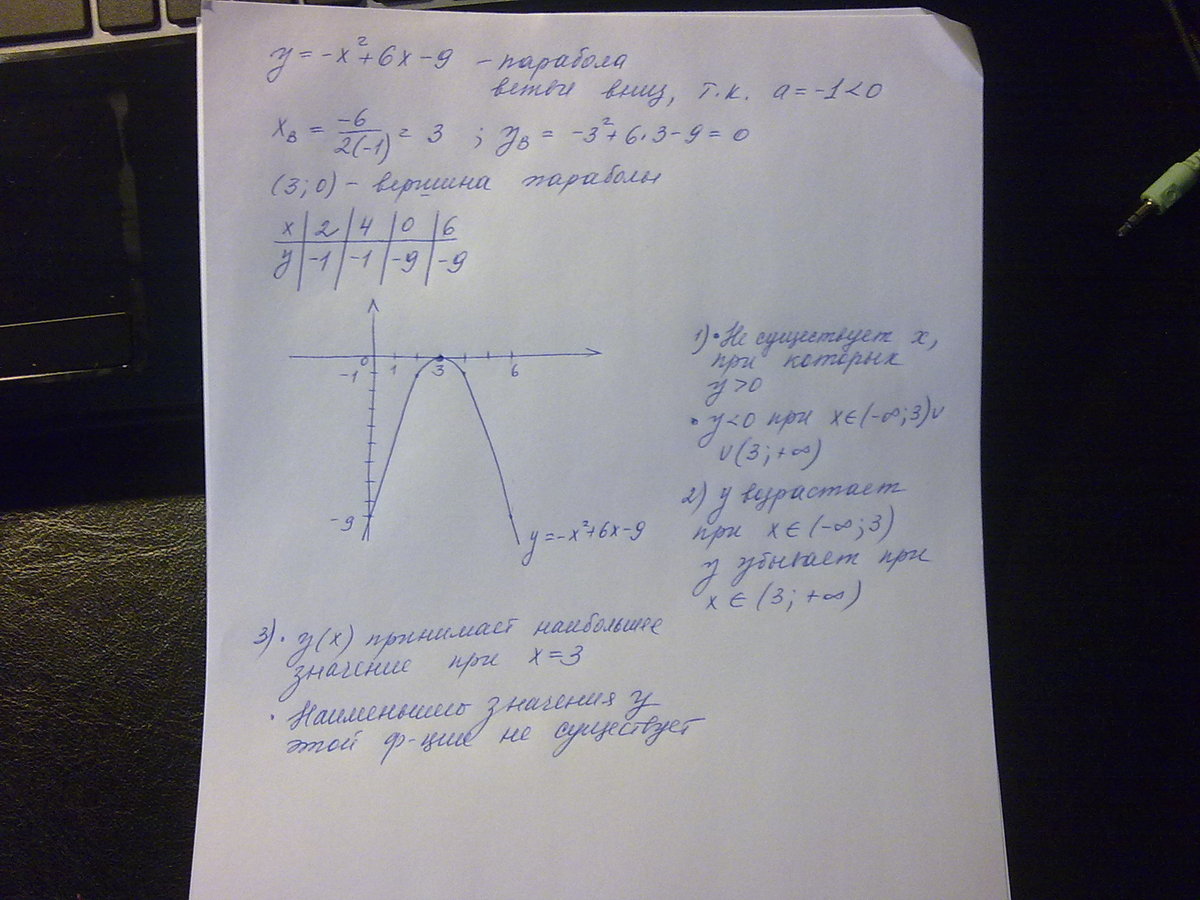 y = -x²+6x-9 - парабола
ветви вниз, т.к. a = -1 < 0
x_в = -6/2(-1) = 3 ; y_в = -3²+6·3-9 = 0
(3; 0) - вершина параболы
x | 2 | 4 | 0 | 6
y | -1 | -1 | -9 | -9
0 1 3 6
-1
-9
y = -x²+6x-9
1) • Не существует x,
при которых
y > 0
• y < 0 при x ∈ (-∞; 3) ∪
∪ (3; +∞)
2) y возрастает
при x ∈ (-∞; 3)
y убывает при
x ∈ (3; +∞)
3) • y(x) принимает наибольшее
значение при x = 3
• Наименьшего значения у
этой ф-ции не существует